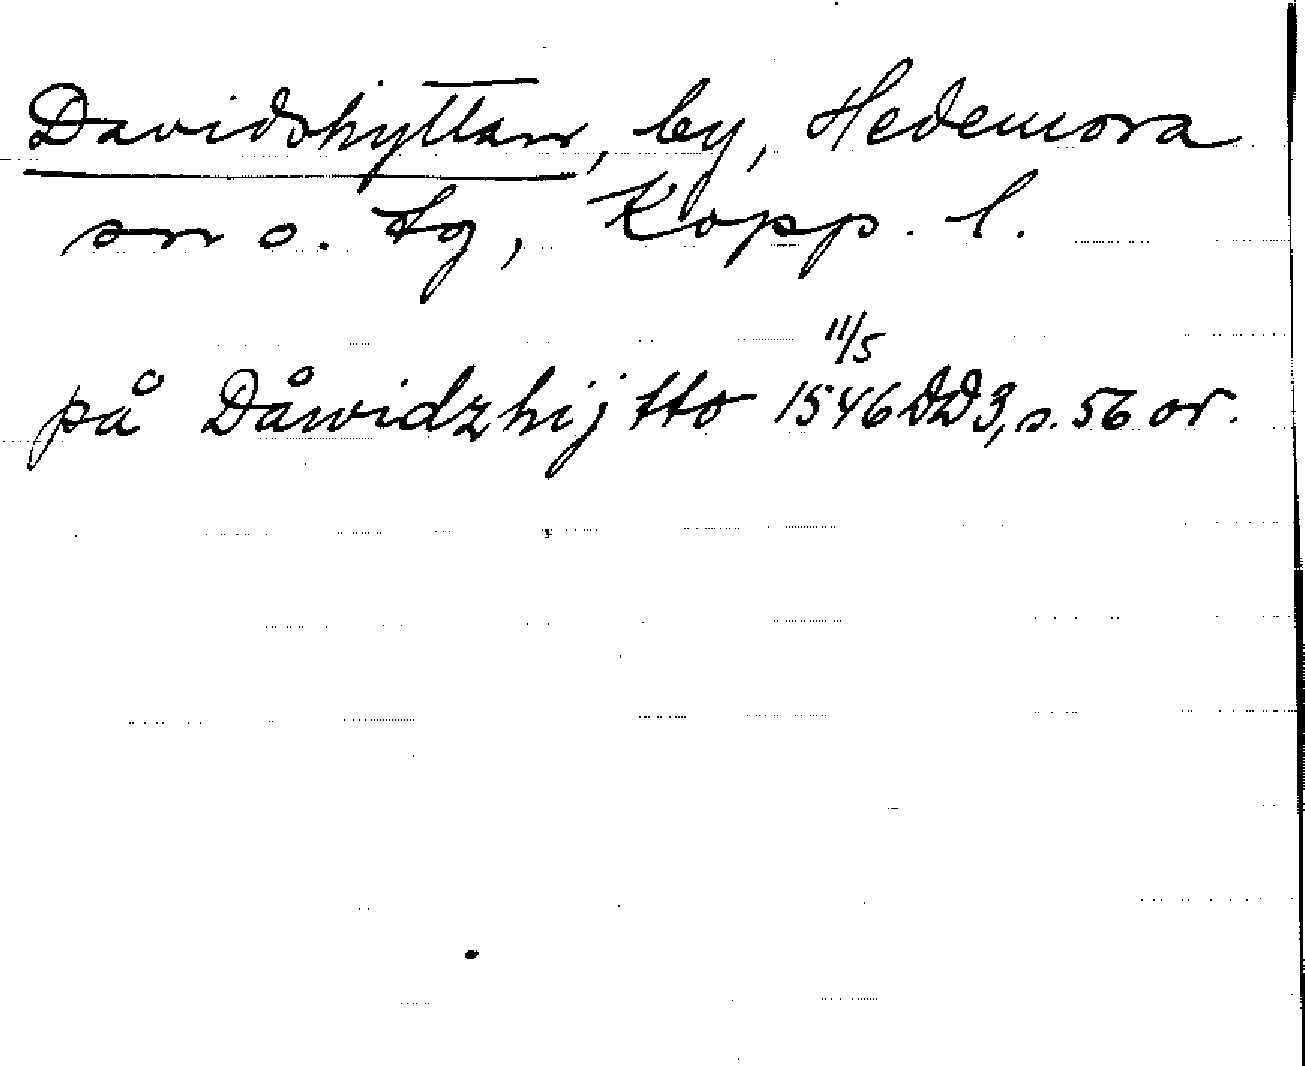 Davidshyttan, by, Hedemora
sn o. tg, Kopp. l.
på Dåwidzhijtto 11/5 1546 DD3, s. 56 or.